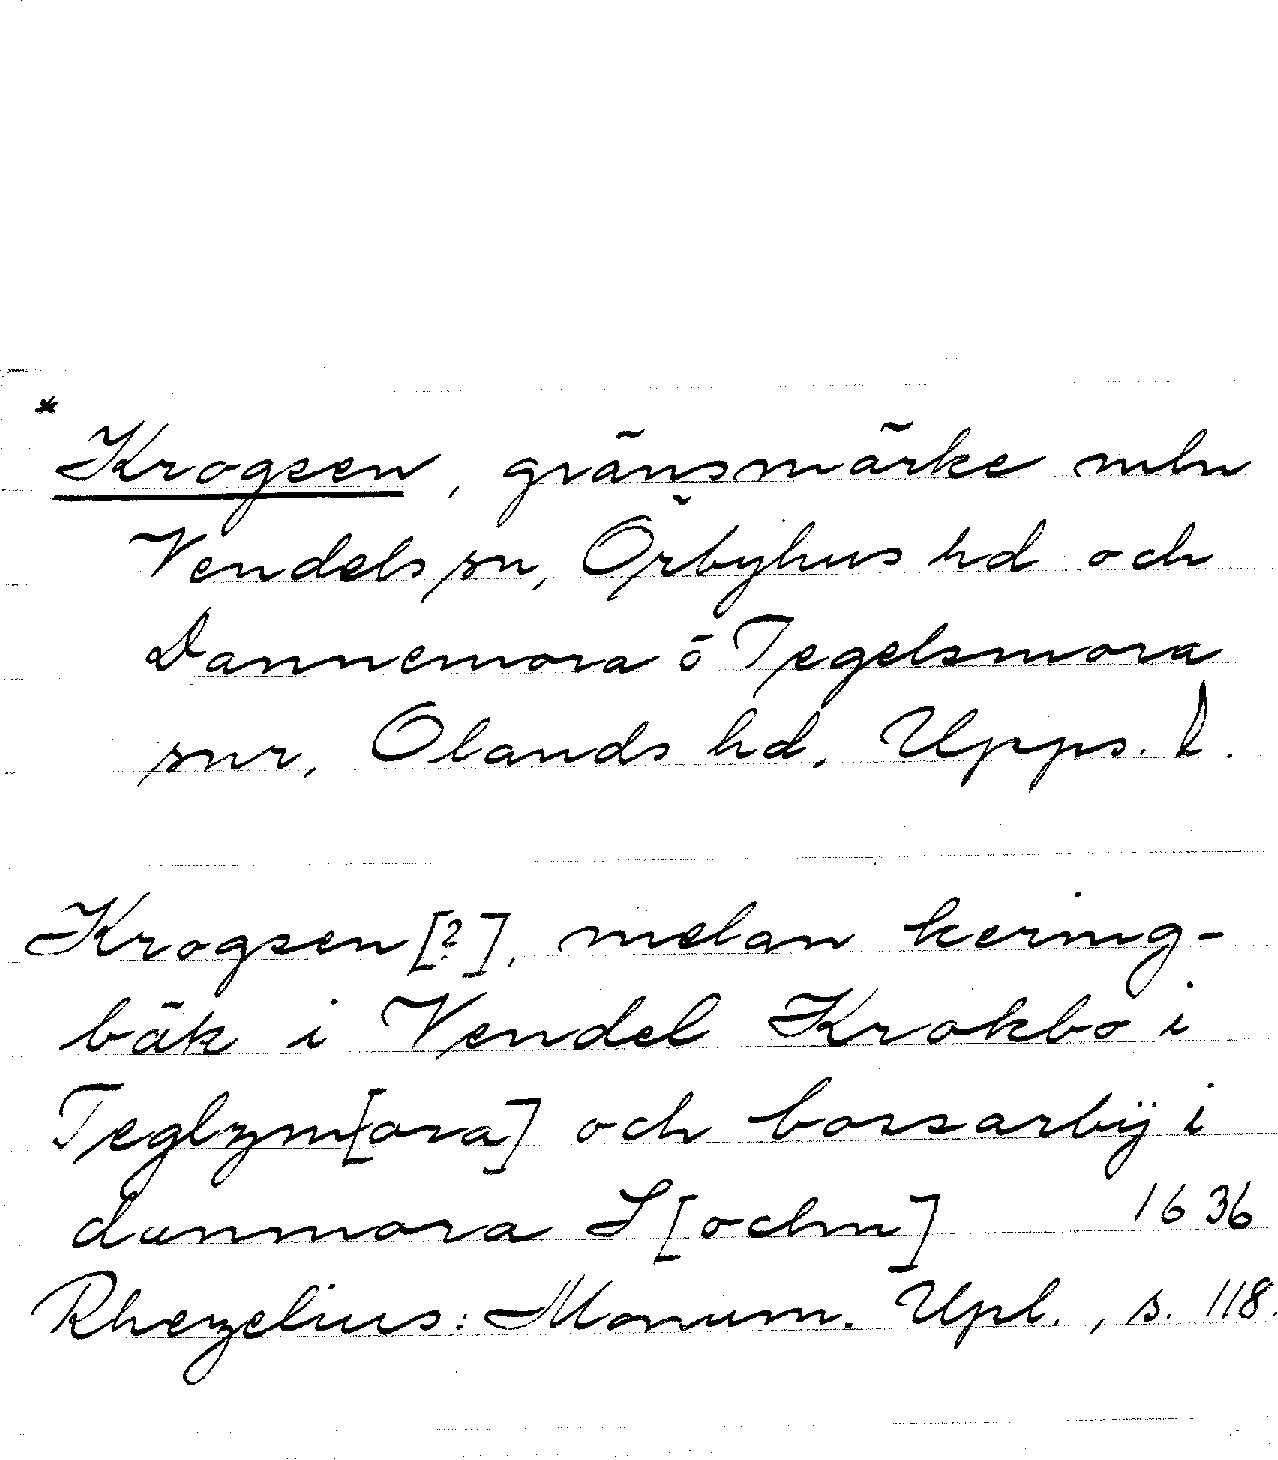 * Krogsen, gränsmärke mln
Vendels sn, Örbyhus hd och
Dannemora o Tegelsmora
snr, Olands hd. Upps. l.
Krogsen [?], melan kering-
bäk i Vendel Krokbo i
Teglzm[ora] och borsarbÿ i
danmora S[ochn] 1636
Rhezelius: Monum. Upl., s. 118.